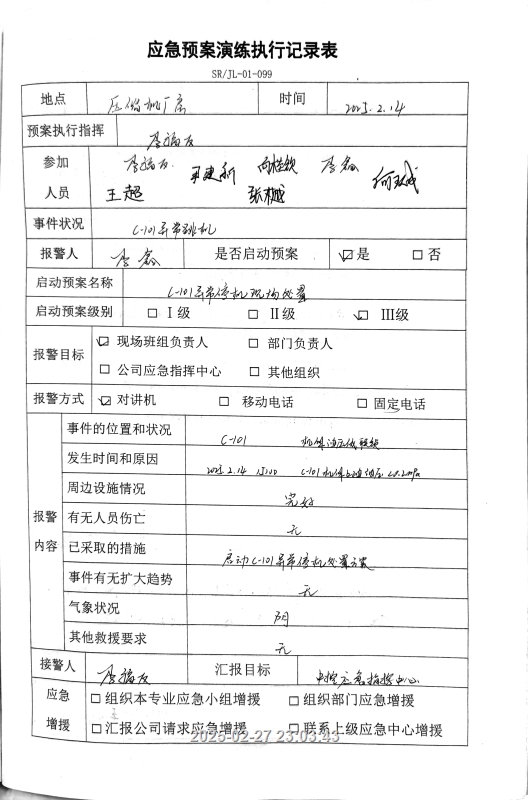 应急预案演练执行记录表
SR/JL-01-099
地点 压缩机厂房 时间 2025.2.14
预案执行指挥 李福友
参加人员 李福友 王建新 李鑫
王超
事件状况 C-101异常跳机
报警人 李鑫 是否启动预案 ☑是 □否
启动预案名称 C-101异常停机现场处置
启动预案级别 □I级 □II级 ☑III级
报警目标 ☑现场班组负责人 □部门负责人
□公司应急指挥中心 □其他组织
报警方式 ☑对讲机 □移动电话 □固定电话
报警内容
事件的位置和状况 C-101 油压低联锁
发生时间和原因 2025.2.14 15:00 C-101
周边设施情况 完好
有无人员伤亡 无
已采取的措施 启动C-101异常停机处置方案
事件有无扩大趋势 无
气象状况 阴
其他救援要求 无
接警人 李福友 汇报目标 中控应急指挥中心
应急增援 □组织本专业应急小组增援 □组织部门应急增援
□汇报公司请求应急增援 □联系上级应急中心增援
2025-02-27 23:03:43